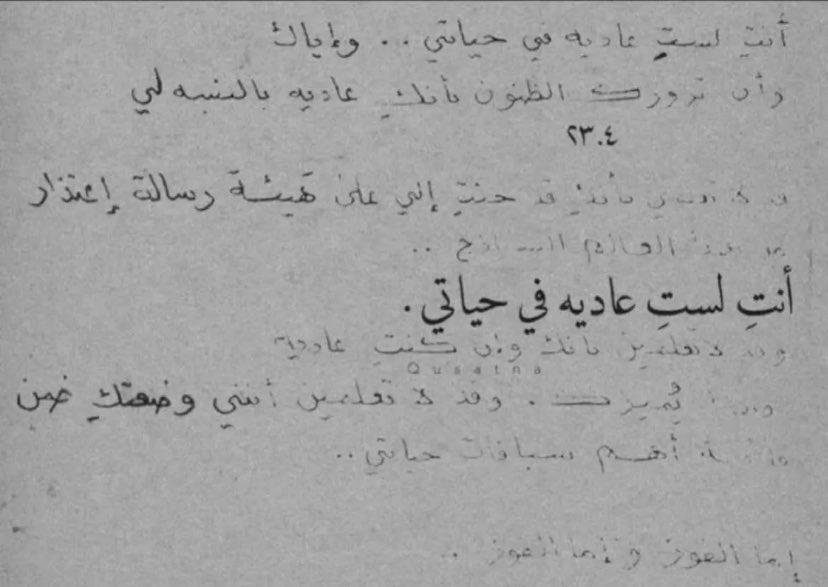 أنتِ لستِ عاديه في حياتي .. وإياك
وأن تزورك الظنون بأنكِ عاديه بالنسبه لي
٢٣.٤
قد لا بأنكِ قد جئتِ إلي على هيئة رسالة إعتذار
من هذا العالم الساذج ..
أنتِ لستِ عاديه في حياتي .
وقد لا تعلمين بأنك وإن كنتِ عادية
Qusaina
يُميزك . وقد لا تعلمين أنني وضعتكِ ضمن
أهم سباقات حياتي ..
إما الفوز وإما الفوز ..